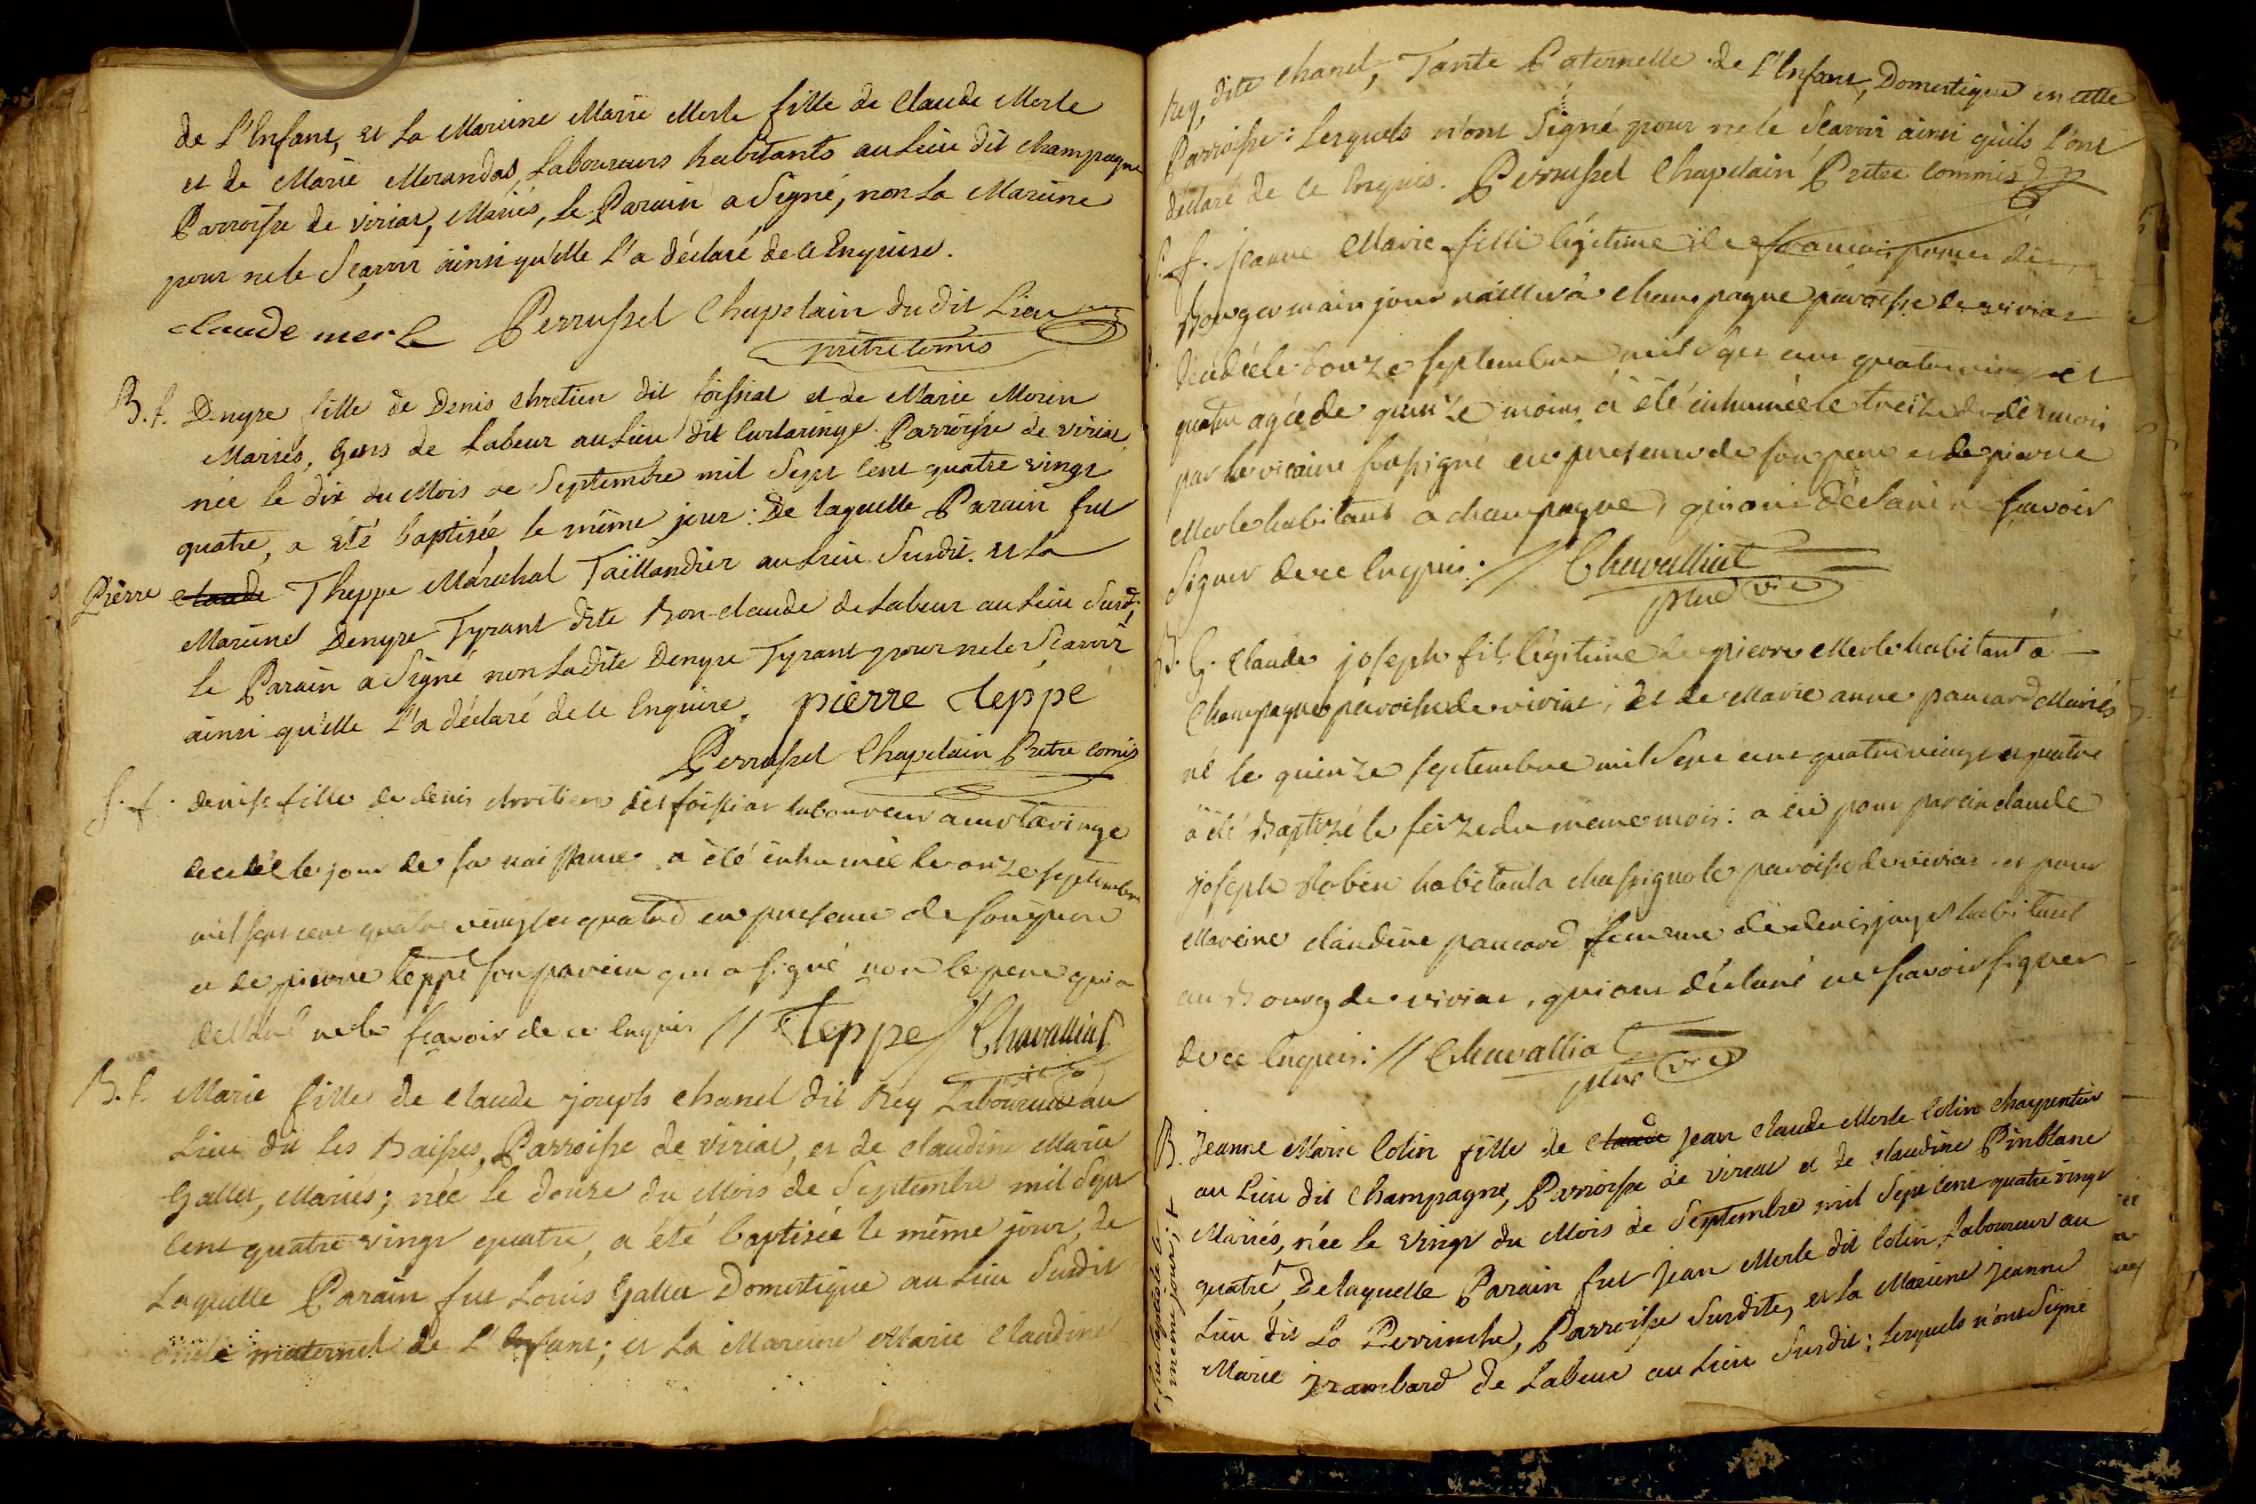 de L'Enfant, et La Mareine Marie Merle fille de Claude Merle
et de Marie Morandas Laboureurs habitants au Lieu dit Champagne
Parroisse de viriat, Mariés, Le Parain a Signé, non La Mareine
pour ne le Sçavoir ainsi qu'elle l'a déclaré de ce Enquise.
claude merle Perrussel Chapelain du dit Lieu
prêtre comis
B. f. Denyse fille de Denis Chretien dit foissiat et de Marie Morin
Mariés, Gens de Labeur au Lieu dit Curtaringe Parroisse de viriat
née le dix du Mois de Septembre mil Sept Cent quatre vingt
quatre, a été baptisée le même jour: De laquelle Parain fut
Pierre Claude Theppe Maréchal Taillandier au Lieu Susdit. et La
Mareine Denyse Tyrant dite Bon-claude de Labeur au Lieu Susdit,
le Parain a Signé non Ladite Denyse Tyrant pour ne le Sçavoir
ainsi qu'elle l'a déclaré de ce Enquise. pierre Teppe
Perrussel Chapelain Prêtre comis
S. f. denise fille de denis chretien dit foissiat laboureur a curtaringe
decedée le jour de sa naissance a été inhumée le onze septembre
mil sept cent quatre vingt et quatre en presence de son pere
et de pierre teppe son parein qui a signé non le pere qui a
declaré ne le sçavoir de ce enquis // Teppe // Chavalliat
B. f. Marie fille de Claude joseph Chanel dit Rey Laboureur au
Lieu dit les Baisses, Parroisse de viriat, et de Claudine Marie
Gallet, Mariés; née le douze du Mois de Septembre mil Sept
Cent quatre vingt quatre, a été baptisée le même jour, de
Laquelle Parain fut Louis Gallet Domestique au Lieu Susdit
oncle maternel de L'Enfant; et La Mareine Marie Claudine
Rey, dite Chanel, Tante Paternelle de L'Enfant, Domestique en cette
Parroisse: Lesquels n'ont Signé pour ne le Sçavoir ainsi qu'ils l'ont
déclaré de ce Enquis. Perrussel Chapelain Prêtre commis
S. f. Jeanne Marie fille légitime de francois
journaillier à champagne paroisse de viriat
décédée le douze septembre mil sept cent quatre vingt et
quatre agée de quinze mois a été inhumée le treize du dit mois
par le vicaire soussigné en presence de son pere et de pierre
Merle habitant a champagne, qui ont déclaré ne sçavoir
signer de ce enquis. // Chavalliat
ptre vic
B. G. Claude joseph fils légitime de pierre Merle habitant à
Champagne paroisse de viriat, et de Marie anne pauvard Mariés
né le quinze septembre mil sept cent quatre vingt et quatre
a été Baptizé le seize du meme mois: a eu pour parein claude
joseph Robin habitant a chassignole paroisse de viriat et pour
Mareine claudine pauvard femme de denis habitant
au Bourg de viriat, qui ont déclaré ne sçavoir signer
de ce enquis. // Chavalliat
ptre vic
B. Jeanne Marie Colin fille de Claude Jean Claude Merle Colin Charpentier
au Lieu dit Champagne, Parroisse de viriat et de Claudine Pinblanc
Mariés, née le vingt du Mois de Septembre mil Sept cent quatre vingt
quatre, De laquelle Parain fut Jean Merle dit Colin Laboureur au
Lieu dit La Perrinche, Parroisse Susdite, et La Mareine Jeanne
Marie Jrambard de Labeur au Lieu Susdit; Lesquels n'ont Signé
baptisée le
même jour, +